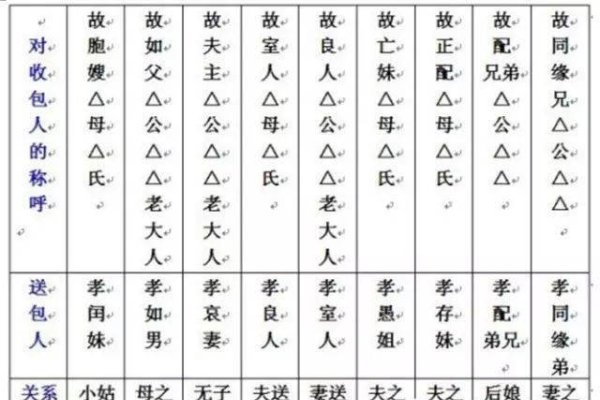 对收包人的称呼
故胞嫂△母△氏
故如父△公△△老大人
故夫主△公△△老大人
故室人△母△氏
故良人△公△△老大人
故亡妹△母△氏
故正配△母△氏
故配兄弟△公△△
故同缘兄△公△△
送包人
孝闰妹
孝如男
孝哀妻
孝良人
孝室人
孝愚姐
孝存妹
孝配弟兄
孝同缘弟
关系
小姑
母之
无子
夫送
妻送
夫之
夫之
后娘
妻之